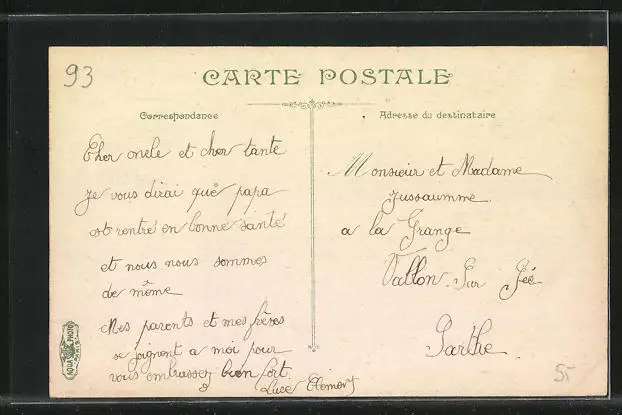 93
CARTE POSTALE
Correspondance
Adresse du destinataire
Cher oncle et cher tante
Je vous dirai que papa
est rentré en bonne santé
et nous nous sommes
de même
Mes parents et mes frères
se joignent a moi pour
vous embrasser bien fort
Luce
Monsieur et Madame
Jussaumme
a la Grange
Vallon Sur Gée
Sarthe
AQUA PHOTO
PARIS